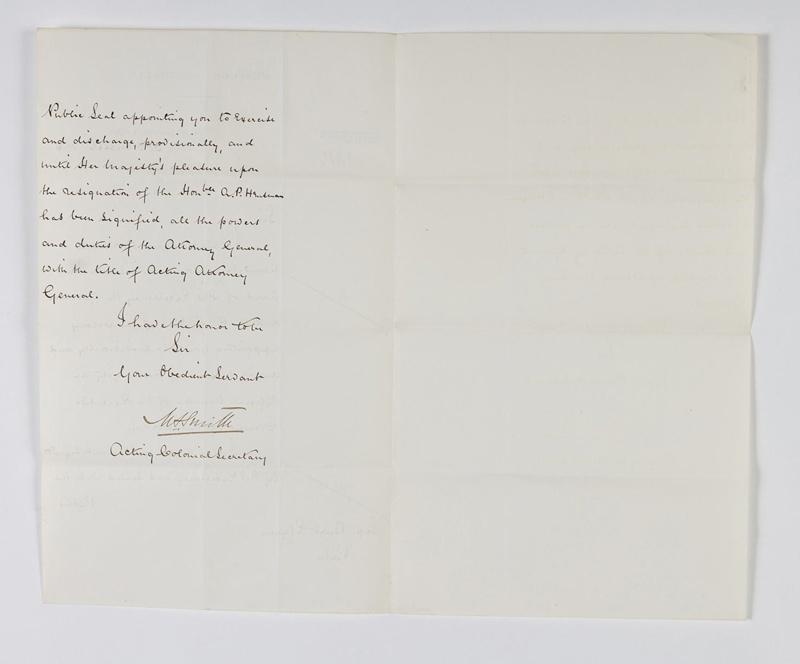 Public Seal appointing you to Exercise
and discharge, provisionally, and
until Her Majesty's pleasure upon
the resignation of the Honble A.P. Hensman
has been signified, all the powers
and duties of the Attorney General,
with the title of Acting Attorney
General.
I have the honor to be
Sir
Your Obedient Servant
M S Smith
Acting Colonial Secretary